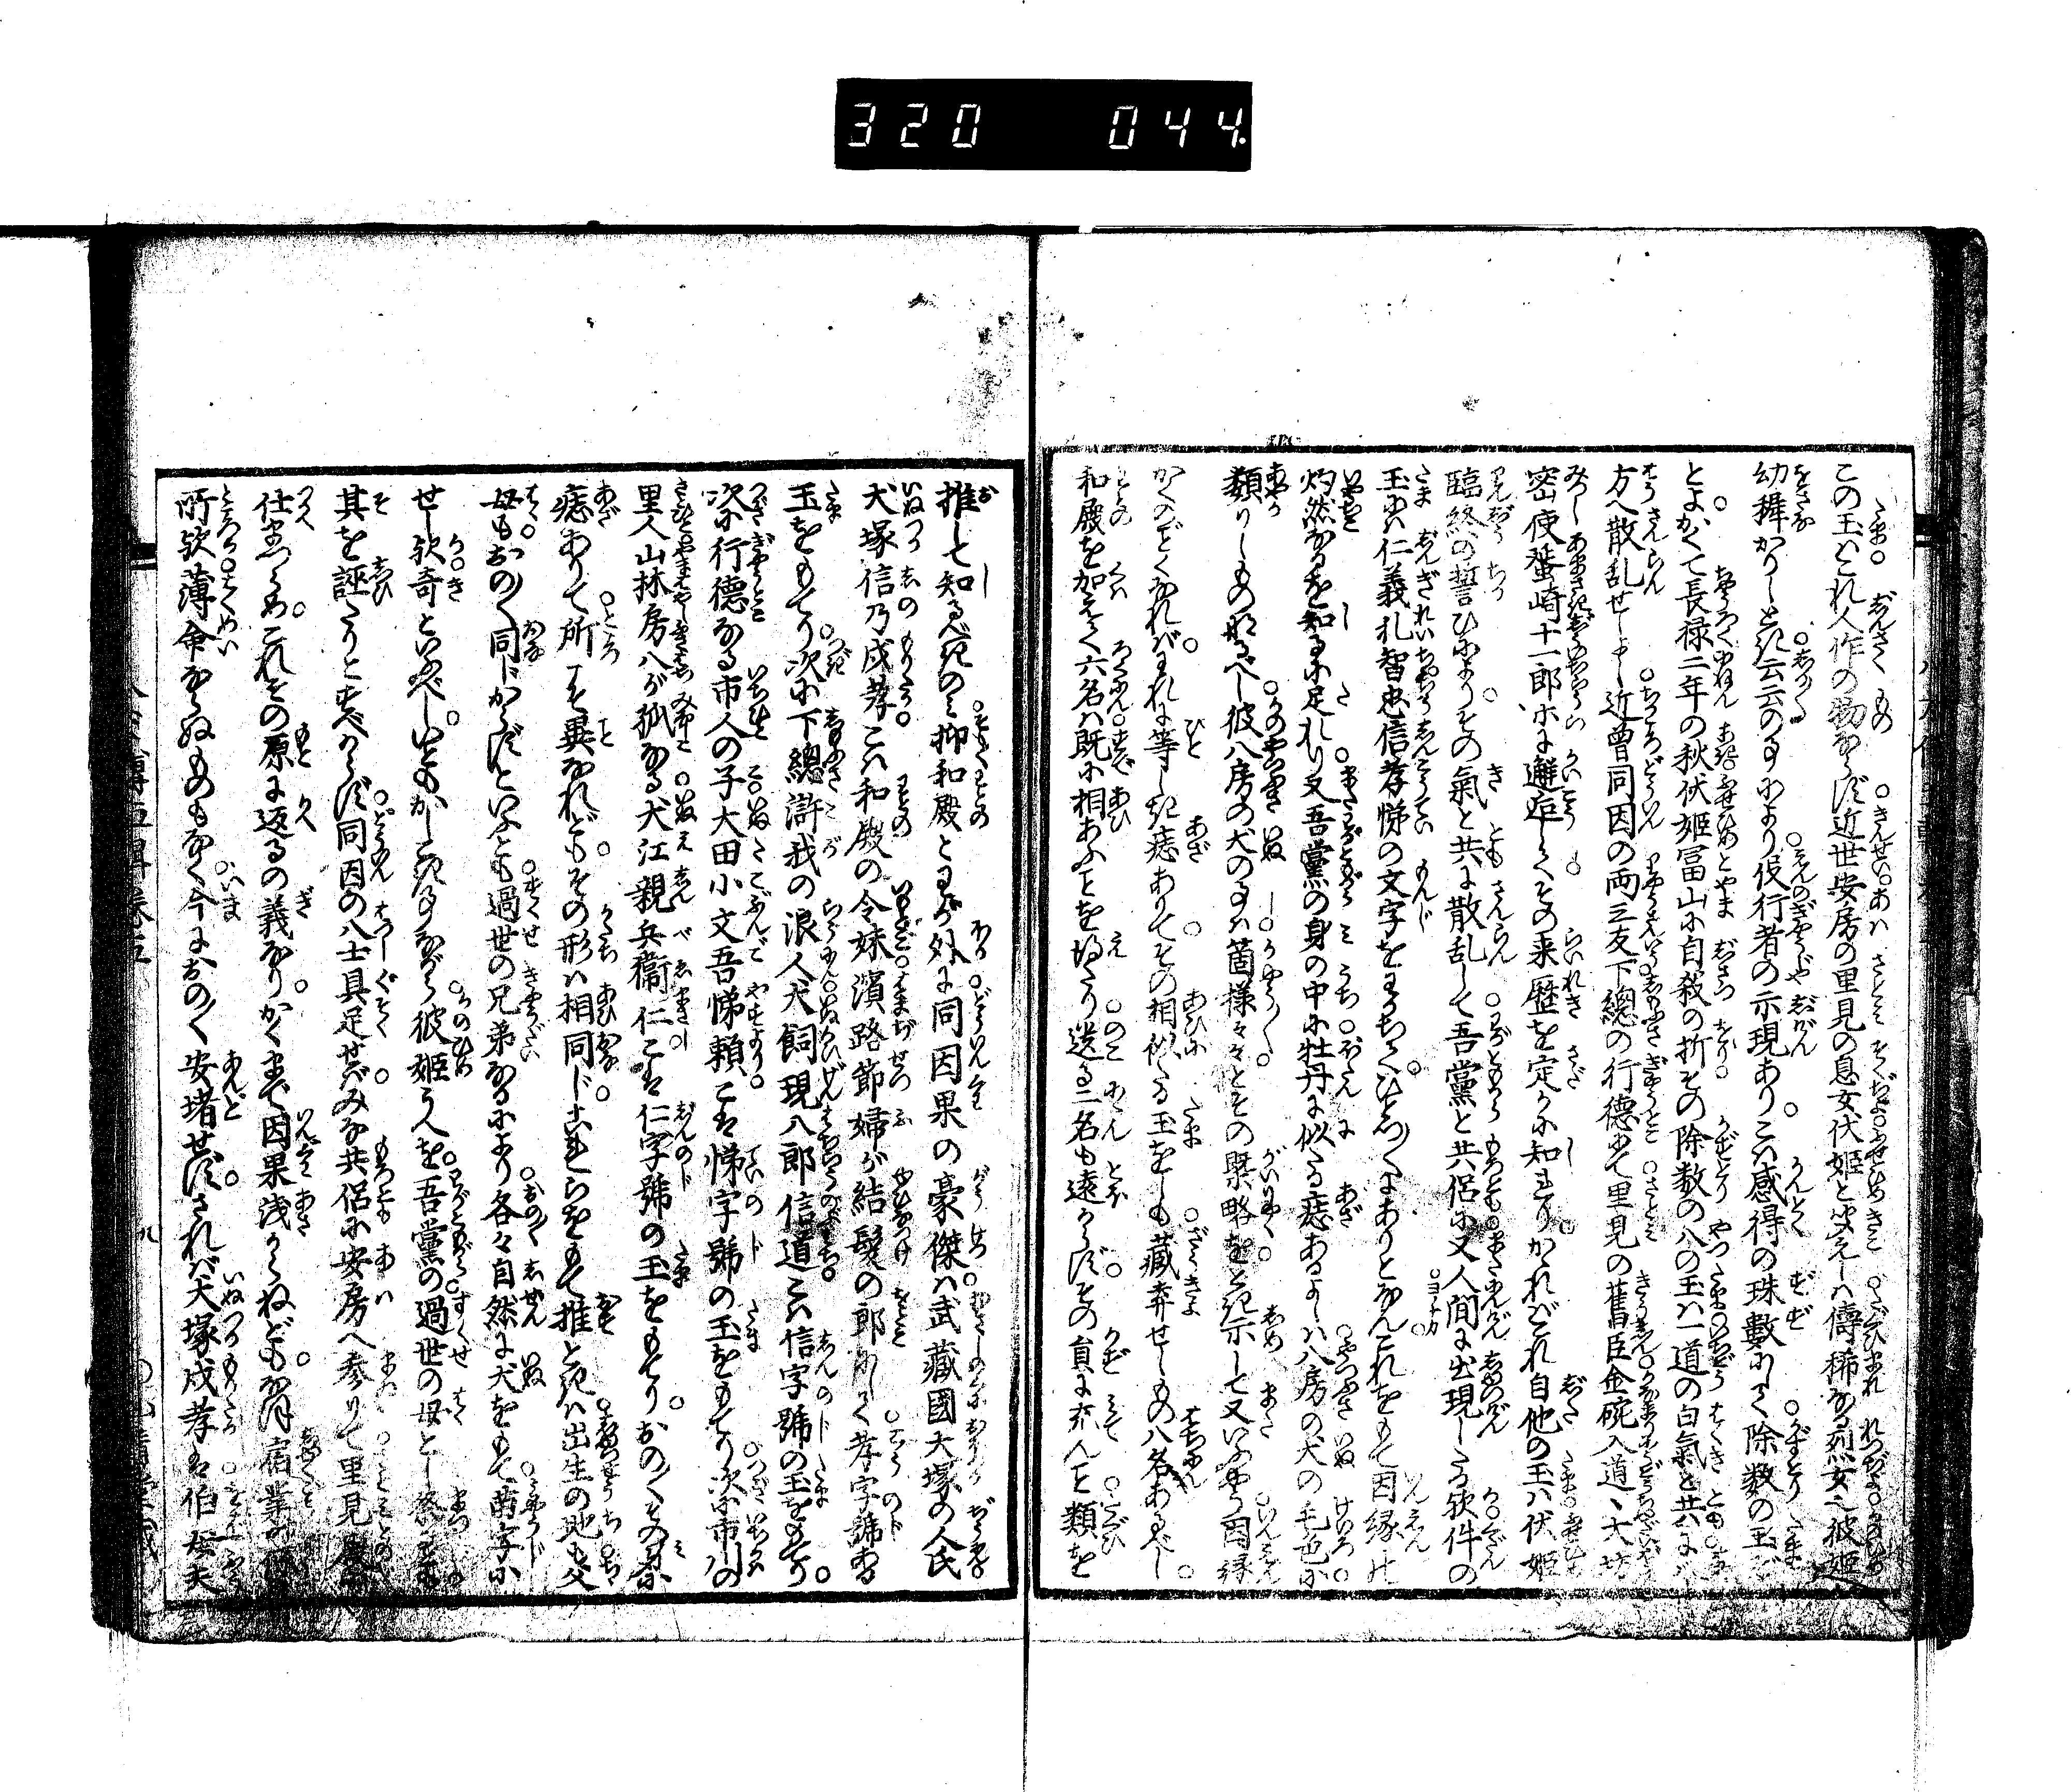 320 044.
この玉はこれ人作の物ならず近世安房の里見の息女伏姫と聞えしは儔稀なる烈女也彼姫
幼稺かりしとき云云の事により役行者の示現ありこは感得の珠數にて除数の玉
とよかくて長禄二年の秋伏姫冨山に自殺の折その除数の八の玉は一道の白氣と共に
方へ散乱せしよし近曽同因の両三友下總の行德にて里見の舊臣金碗入道丶大坊
密使蜑崎十一郎に邂逅してその来歴を定かに知れりかゝればこれ自他の玉は伏姫
臨終の誓ひによりその氣と共に散乱して吾黨と共侶に又人間に出現したる欤件の
玉には仁義礼智忠信孝悌の文字をわかちてひとつ／＼にありとなんこれをもて因縁
灼然なるを知るに足れり又吾黨の身の中に牡丹に似たる痣あるよしは八房の犬の毛色に
類りしものなるべし彼八房の犬の事は箇様々々とその槩略をとき示して又いふやう因縁
かくのごとくなればわれに等しき痣ありてその相似たる玉をしも藏弆せしもの八名あるべし
和殿を加えて六名は既に相あふことを得たり送る二名も遠からずその員に充んと類を
推して知るべきのみ抑和殿とわが外に同因果の豪傑は武藏國大塚の人氏
犬塚信乃戍孝こは和殿の令妹濱路節婦が結髪の郎にして孝字號なる
玉をもてり次に下總滸我の浪人犬飼現八郎信道こは信字號の玉をもてり
次に行德なる市人の子犬田小文吾悌順こは悌字號の玉をもてり次に市川の
里人山林房八が孤なる犬江親兵衞仁こは仁字號の玉をもてりおの／＼その身に
痣ありて所こそ異なれどもその形は相同じこれらをもて推ときは出生の地も父
母もおの／＼同じからずといふとも過世の兄弟なるにより各々自然に犬をもて苗字に
せし欤奇といふべしいともかしこき事ながら彼姫うへを吾黨の過世の母とし
其を誣たりとすべからず同因の八士具足せばみな共侶に安房へ参りて里見殿に
仕まつらめこれその原に返るの義なりかくまで因果淺からねどもなほ宿業の
所欤薄命ならぬものもなく今におの／＼安堵せずされば犬塚戍孝は伯母夫